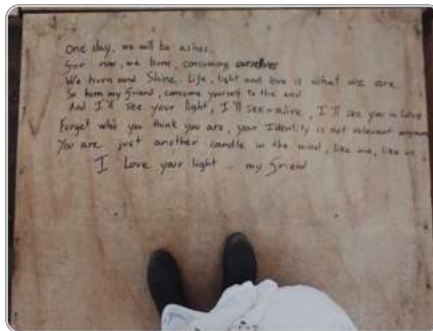 One day, we will be ashes.
For now, we burn, consuming ourselves
We burn and Shine. Life, light and love is what we are.
So burn my friend, consume yourself to the end
And I'll see your light, I'll see alive, I'll see you in Love
Forget who you think you are, your Identity is not relevant anymore
You are just another candle in the wind, like me, like us
I Love your light... my Friend